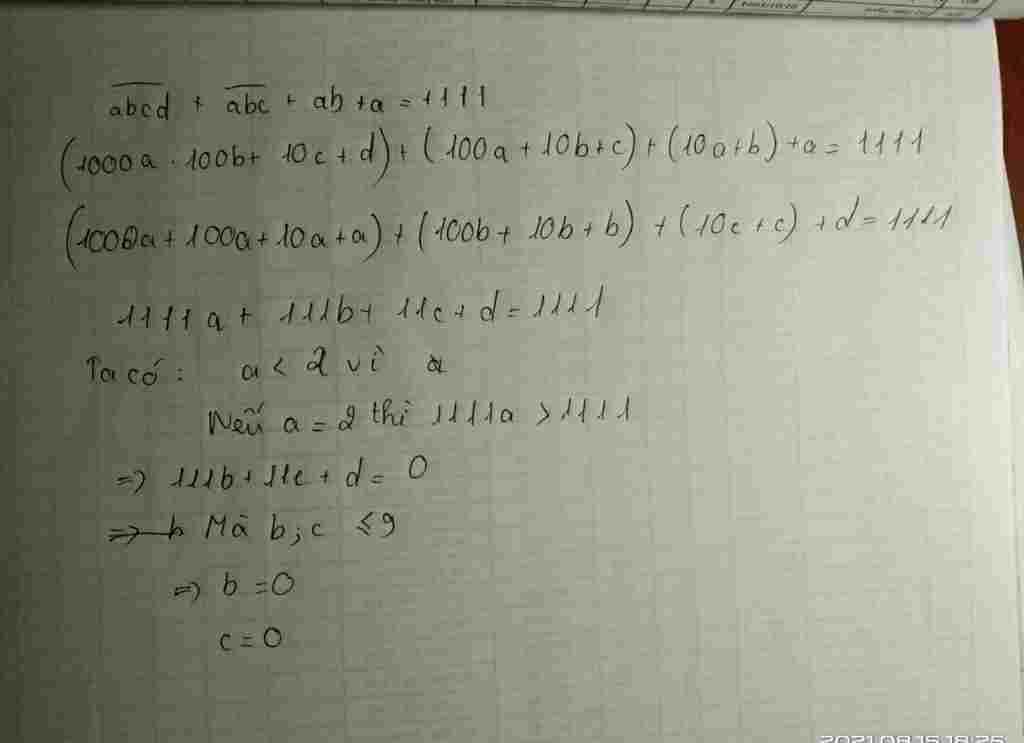 abcd + abc + ab + a = 1111
(1000a . 100b + 10c + d) + (100a + 10b + c) + (10a + b) + a = 1111
(1000a + 100a + 10a + a) + (100b + 10b + b) + (10c + c) + d = 1111
1111a + 111b + 11c + d = 1111
Ta có : a < 2 vì a
Nếu a = 2 thì 1111a > 1111
=> 111b + 11c + d = 0
=> b Mà b; c ≤ 9
=> b = 0
c = 0
2021.08.15 18:25